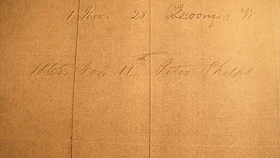 1 Nov. 28
1865. Nov 11th Peter Phelps